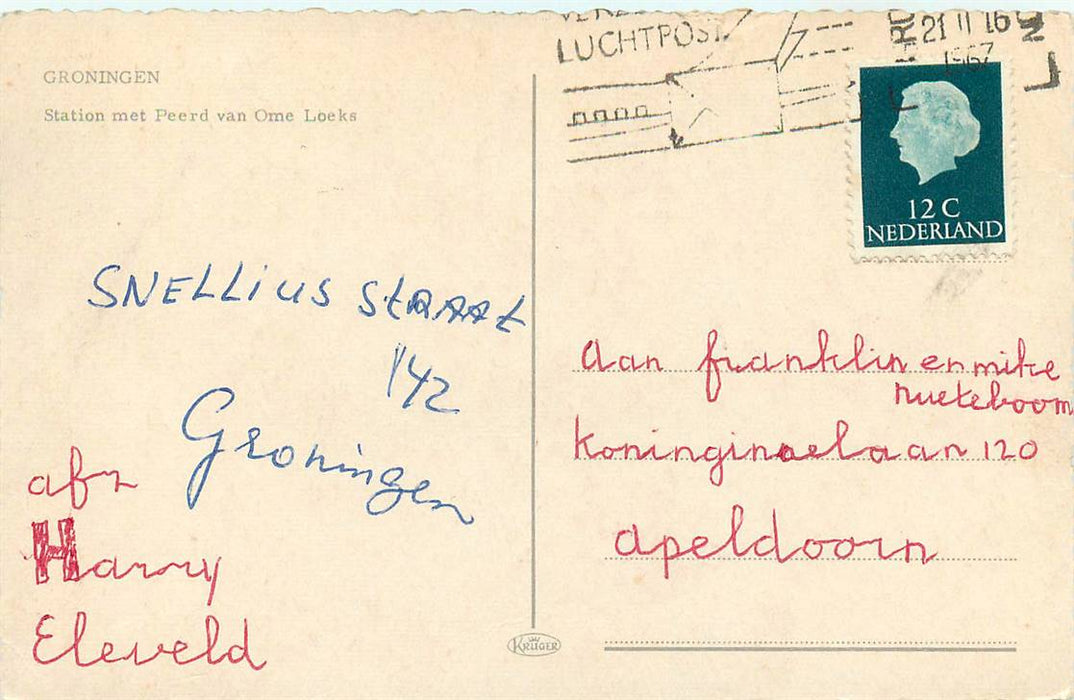 GRONINGEN
Station met Peerd van Ome Loeks
LUCHTPOST
21 II 16
1967
12 C
NEDERLAND
SNELLiUS StRAAt
142
Groningen
afz
Harry
Eleveld
KRÜGER
aan franklin en mike
nueteboom
koninginnelaan 120
apeldoorn